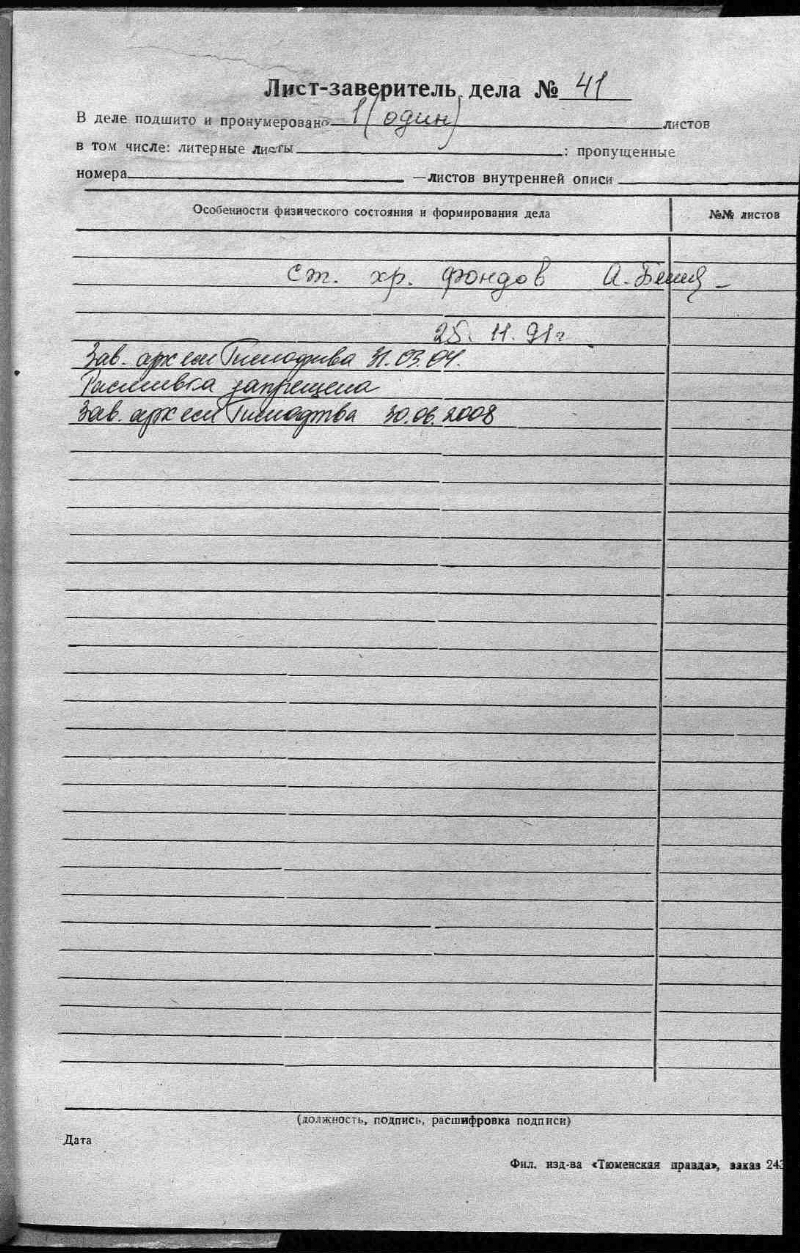 Лист-заверитель дела № 41
В деле подшито и пронумеровано 1 (один) листов
в том числе: литерные листы ; пропущенные
номера — листов внутренней описи
Особенности физического состояния и формирования дела
№№ листов
ст. хр. фондов А.
25. 11. 91г
Зав. арх 31.03.04.
Расшивка запрещена
Зав. арх 30.06.2008
(должность, подпись, расшифровка подписи)
Дата
Фил. изд-ва «Тюменская правда», заказ 243